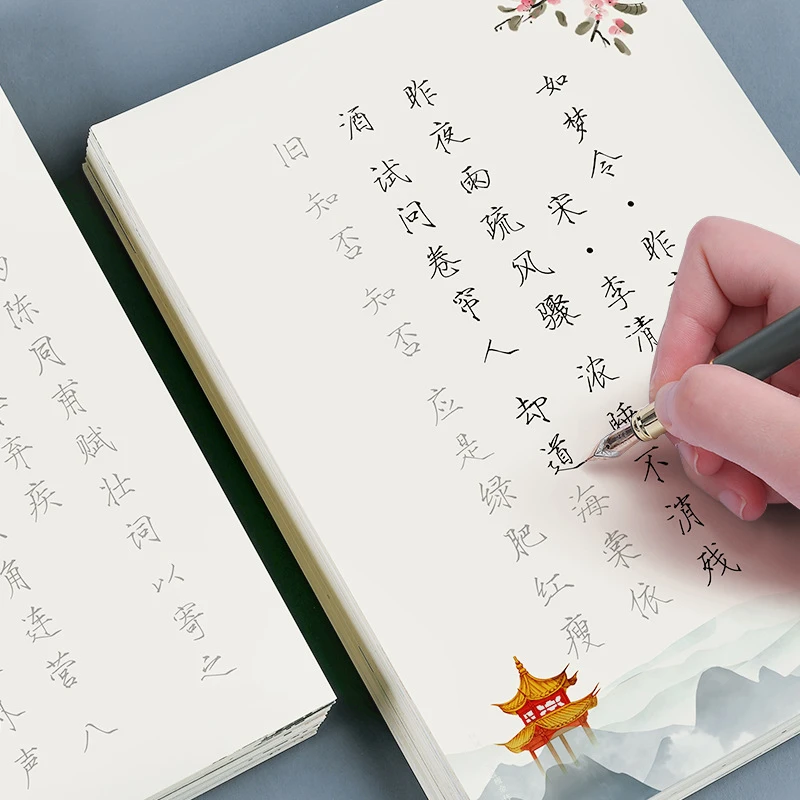 如梦令·昨
宋·李清
昨夜雨疏风骤浓睡不消残
酒试问卷帘人却道海棠依
旧知否知否应是绿肥红瘦
陈同甫赋壮词以寄之
弃疾
角连营八
声